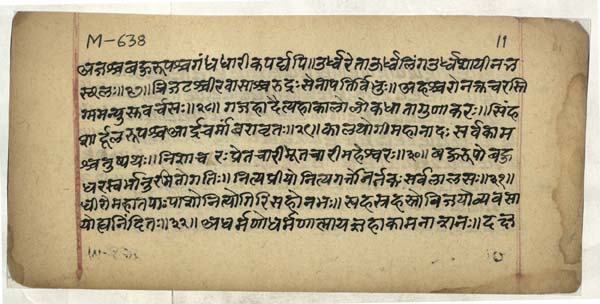 M-638 11
अजश्च बहुरूपश्च गंधधारी कपर्द्यपि॥ उर्ध्वरेता उर्ध्वलिंग उर्ध्वशायी नभ
स्छलः॥ त्रिजटश्चीरवासाश्च रुद्रः सेनापतिर्विभुः॥ अहश्चरो नक्तंचरस्ति
ग्ममन्यु सुवर्चसः॥ गजहा दैत्यहा कालो लोकधाता गुणाकरः॥ सिंह
शार्दूलरूपश्च आर्द्रचर्मांबरावृतः॥ कालयोगी महानादः सर्वकाम
श्चतुष्पथः॥ निशाचरः प्रेतचारी भूतचारी महेश्वरः॥३०॥ बहुरूपो बहु
धरस्वर्भानुरमितो गतिः॥ नित्यप्रीयो नित्यगर्तो निर्तकः सर्वलालसः॥३१॥
घोरो महातपाः पाशो नित्यो गिरिसहो नभः॥ सहस्रहस्तो विजयो व्यवसा
यो ह्यनिंदितः॥३२॥ अधर्षणो धर्षणात्मा यज्ञहा कामनाशनः॥ दक्षे